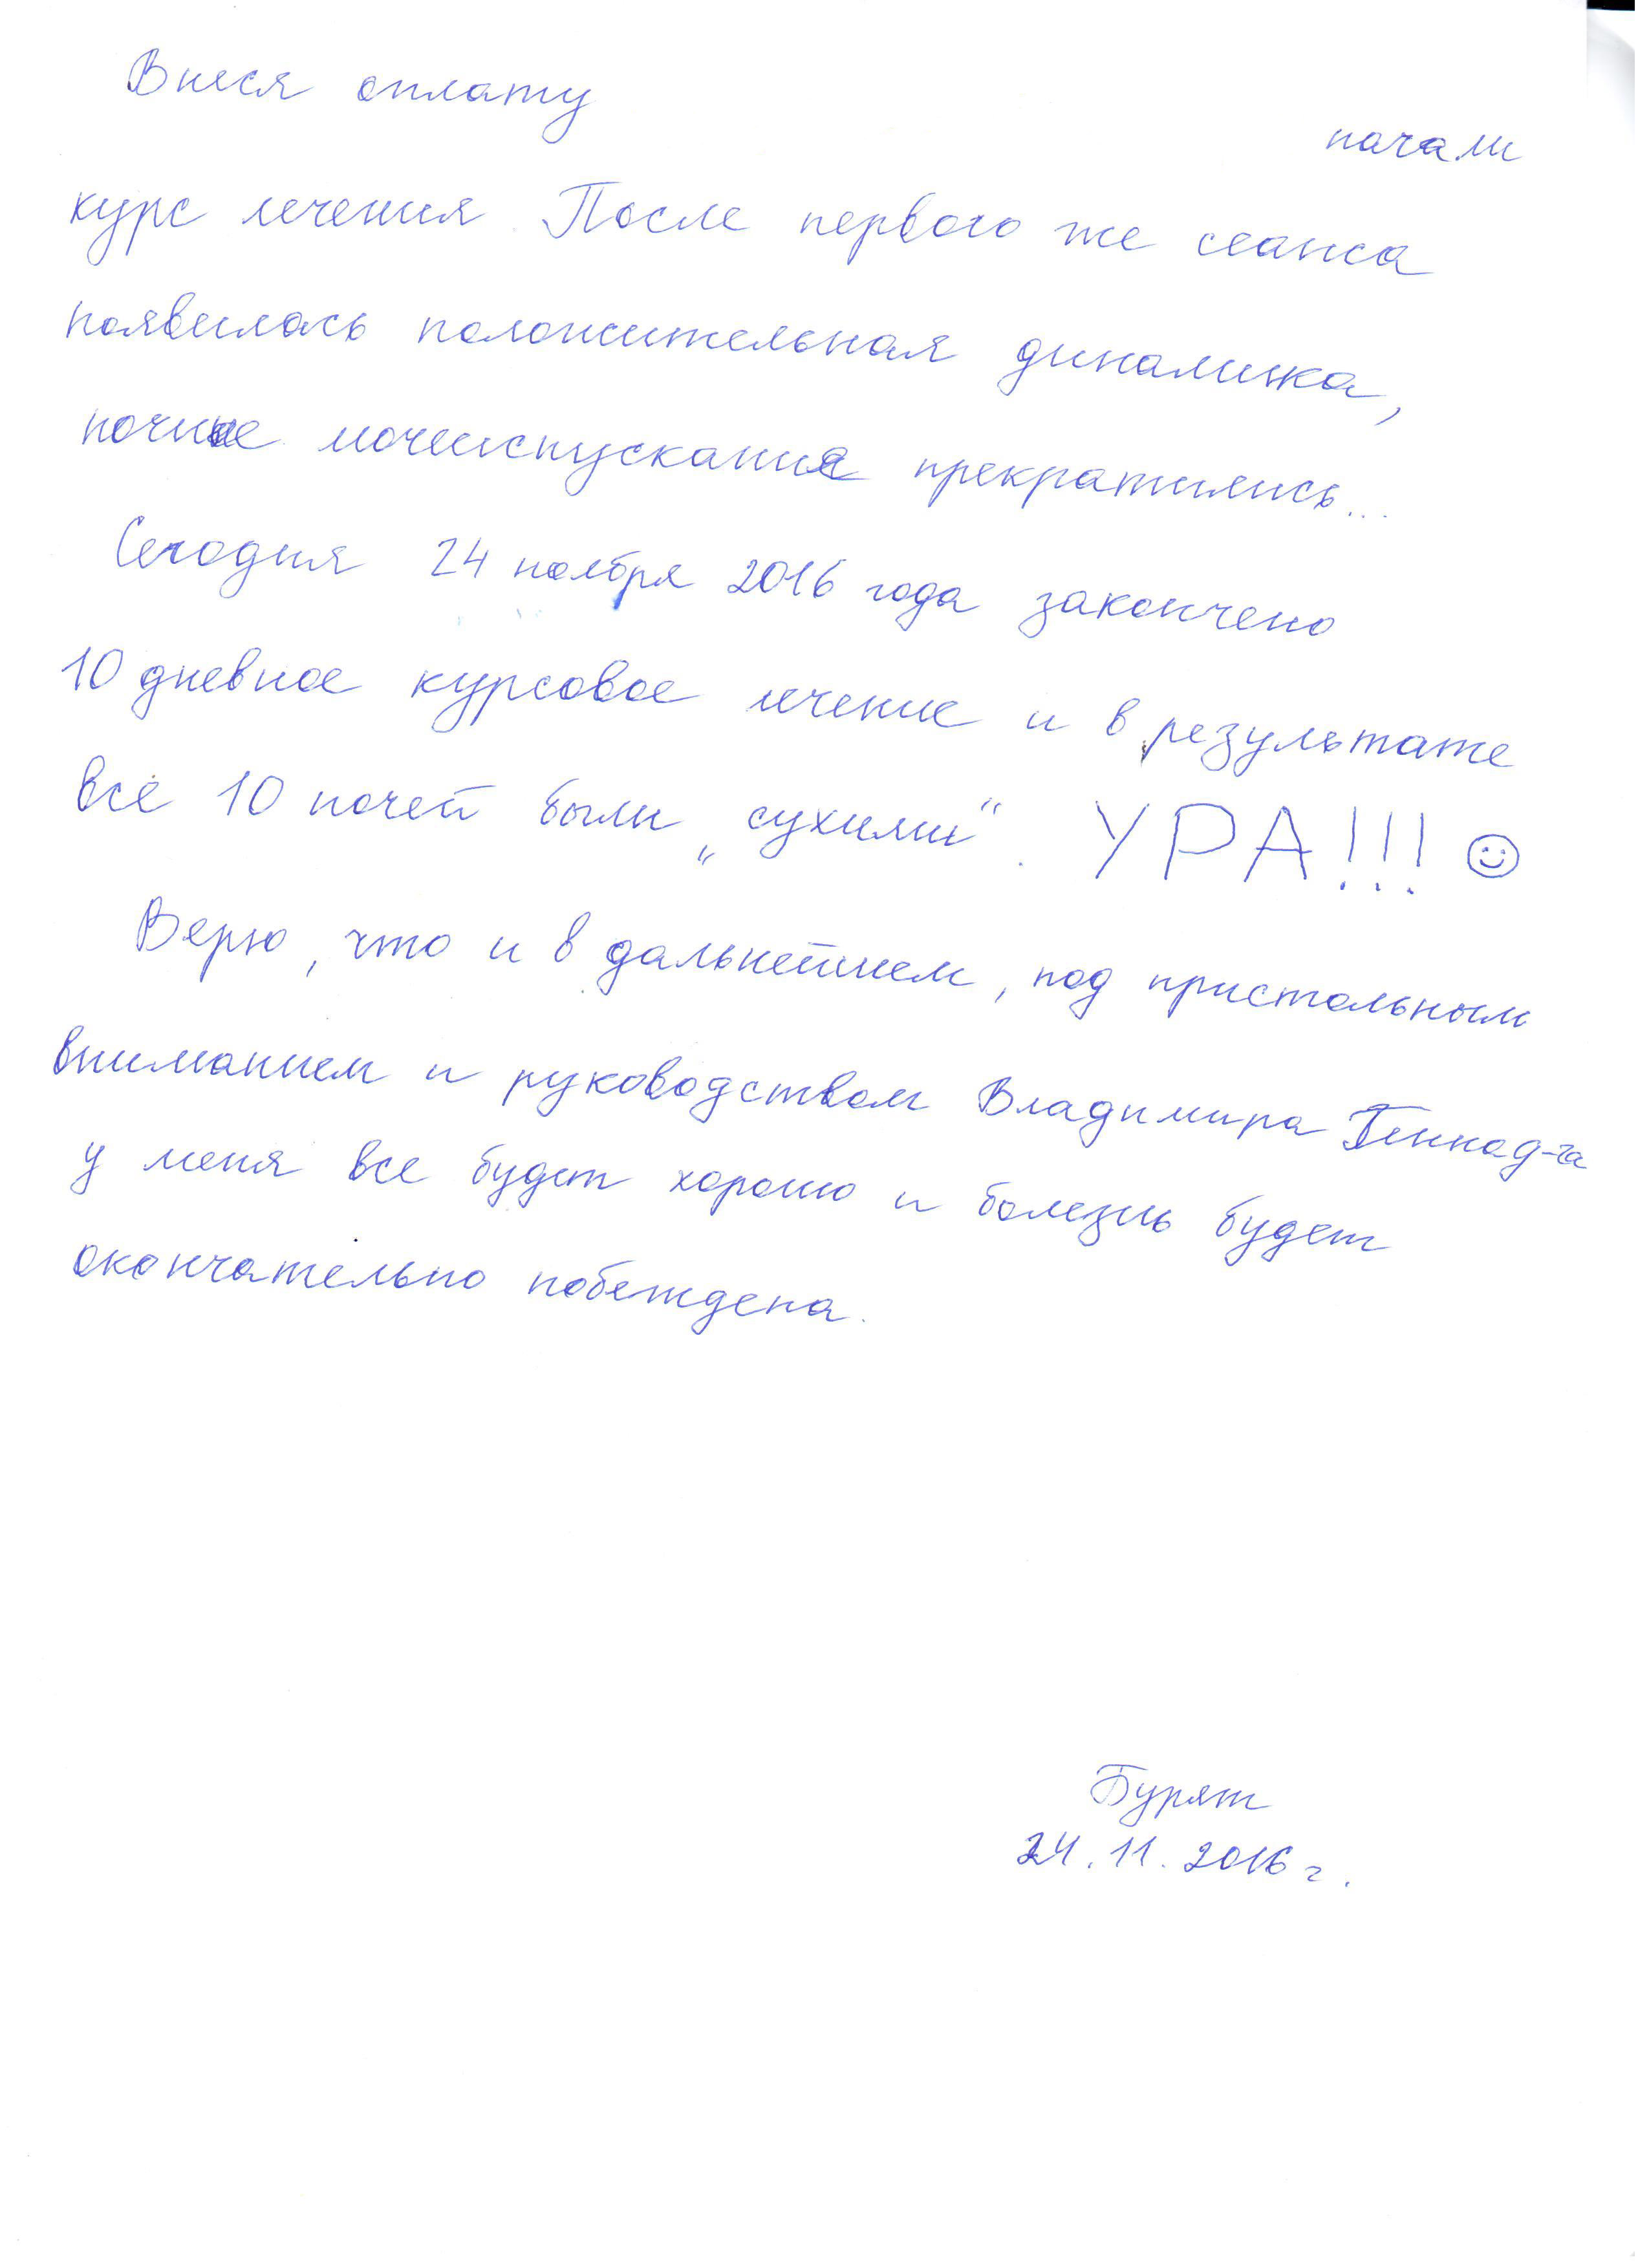 Внеся оплату начали
курс лечения. После первого же сеанса
появилась положительная динамика,
ночные мочеиспускания прекратились...
Сегодня 24 ноября 2016 года закончено
10 дневное курсовое лечение и в результате
все 10 ночей были „сухими“. УРА!!! ☺
Верю, что и в дальнейшем, под пристальным
вниманием и руководством Владимира Геннад-ча
у меня все будет хорошо и болезнь будет
окончательно побеждена.
Бурят
24.11.2016 г.